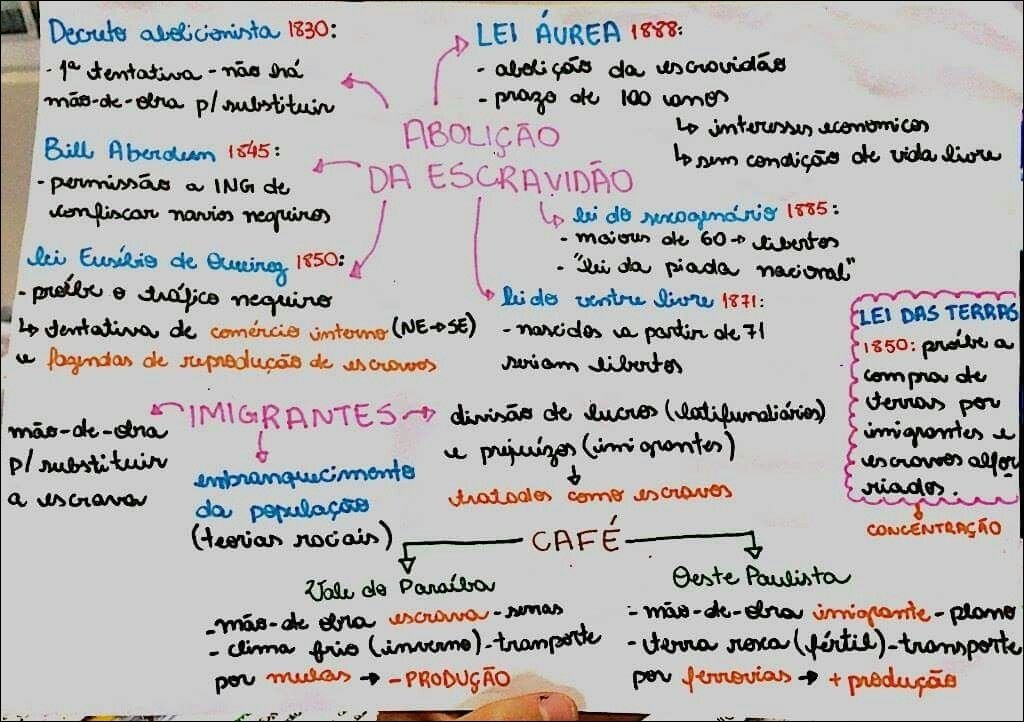 Decreto abolicionista 1830:
- 1ª tentativa - não há
mão-de-obra p/ substituir
LEI ÁUREA 1888:
- abolição da escravidão
- prazo de 100 anos
↳ interesses economicos
↳ sem condição de vida livre
ABOLIÇÃO
DA ESCRAVIDÃO
Bill Aberdeen 1845:
- permissão a ING de
confiscar navios negreiros
lei do sexagenário 1885:
- maiores de 60 → libertos
- "lei da piada nacional"
lei Eusébio de Queiroz 1850:
- proíbe o tráfico negreiro
↳ tentativa de comércio interno (NE→SE)
e fazendas de reprodução de escravos
lei do ventre livre 1871:
- nascidos a partir de 71
seriam libertos
LEI DAS TERRAS
1850: proíbe a
compra de
terras por
imigrantes e
escravos alfor
riados.
CONCENTRAÇÃO
IMIGRANTES
mão-de-obra
p/ substituir
a escrava
embranquecimento
da população
(teorias raciais)
divisão de lucros (latifundiários)
e prejuízos (imigrantes)
tratados como escravos
CAFÉ
Vale do Paraíba
- mão-de obra escrava - serras
- clima frio (inverno) - transporte
por mulas → - PRODUÇÃO
Oeste Paulista
- mão-de-obra imigrante - plano
- terra roxa (fértil) - transporte
por ferrovias → + produção